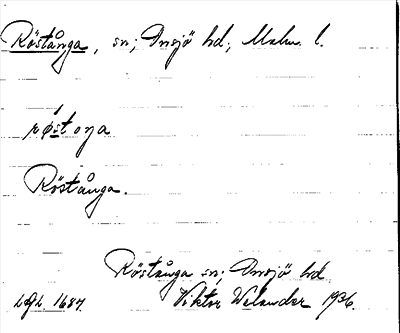 Röstånga, sn; Onsjö hd; Malm. l.
røstoŋa
Röstånga.
Röstånga sn; Onsjö hd.
LGL. 1687. Viktor Welander 1936.